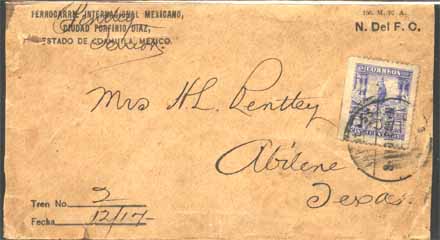 FERROCARRIL INTERNACIONAL MEXICANO,
CIUDAD PORFIRIO DIAZ,
ESTADO DE COAHUILA, MEXICO.
150. M. T. A.
N. Del F. O.
CORREOS
Mrs H.L. Penttey
Abilene
Texas.
Tren No. 2
Fecha 12/17